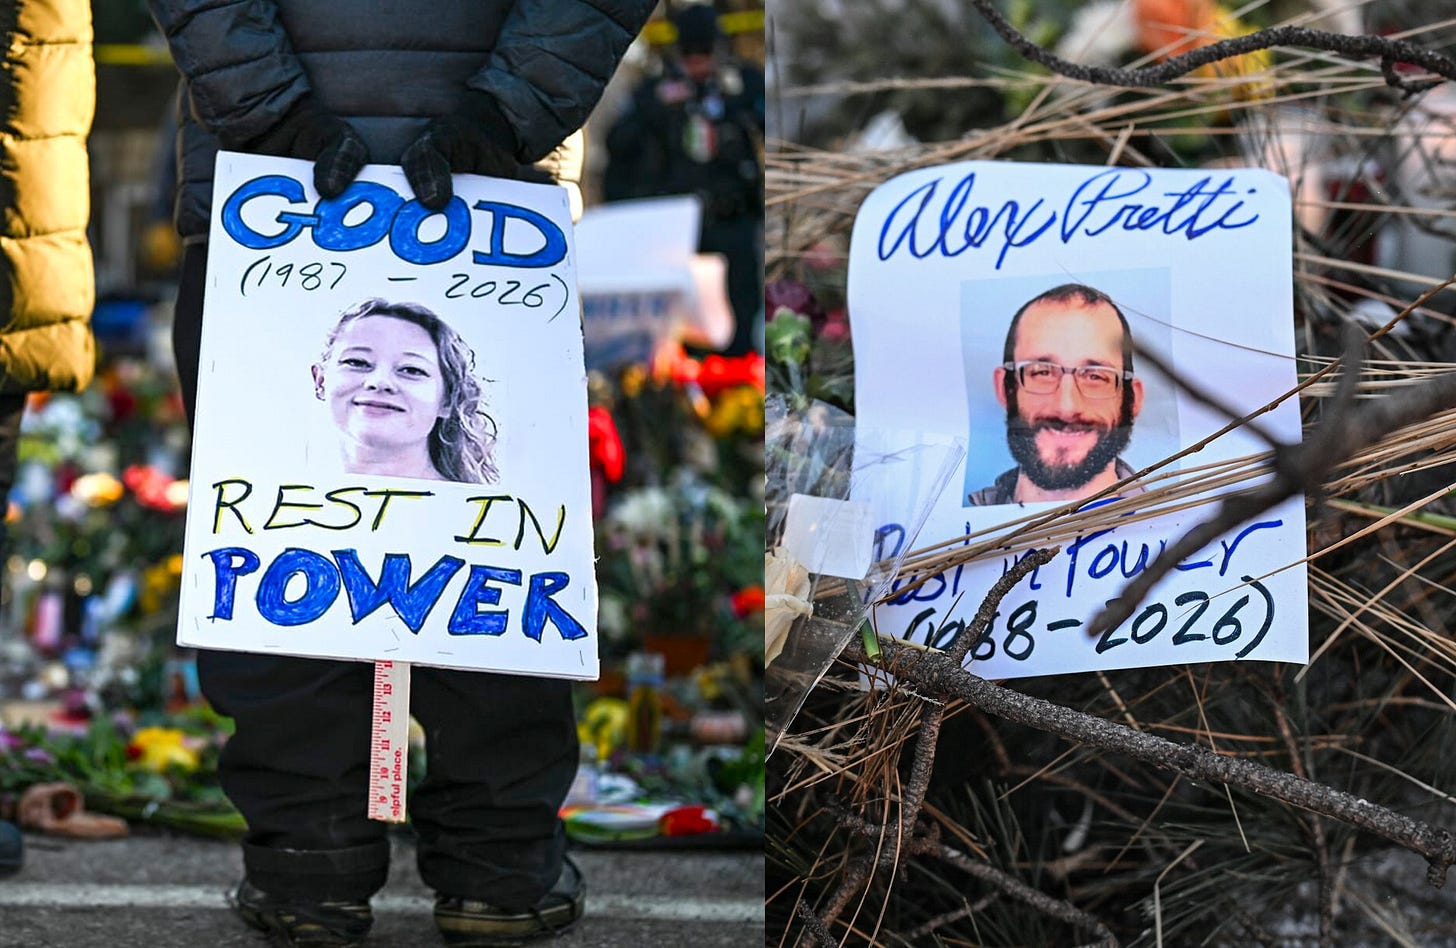 GOOD
(1987 - 2026)
REST IN
POWER
elpful place.
Alex Pretti
Rest in Power
(1968-2026)